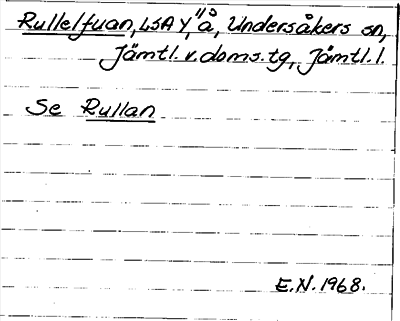 Rullelfuan, LSA Y, "å, Undersåkers sn,
Jämtl. v. doms. tg, Jämtl. l.
Se Rullan
E.N. 1968.